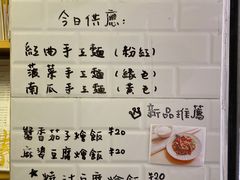 今日供應:
紅曲手工麵(粉紅)
菠菜手工麵(綠色)
南瓜手工麵(黃色)
新品推薦
醬香茄子燴飯 120
麻婆豆腐燴飯 120